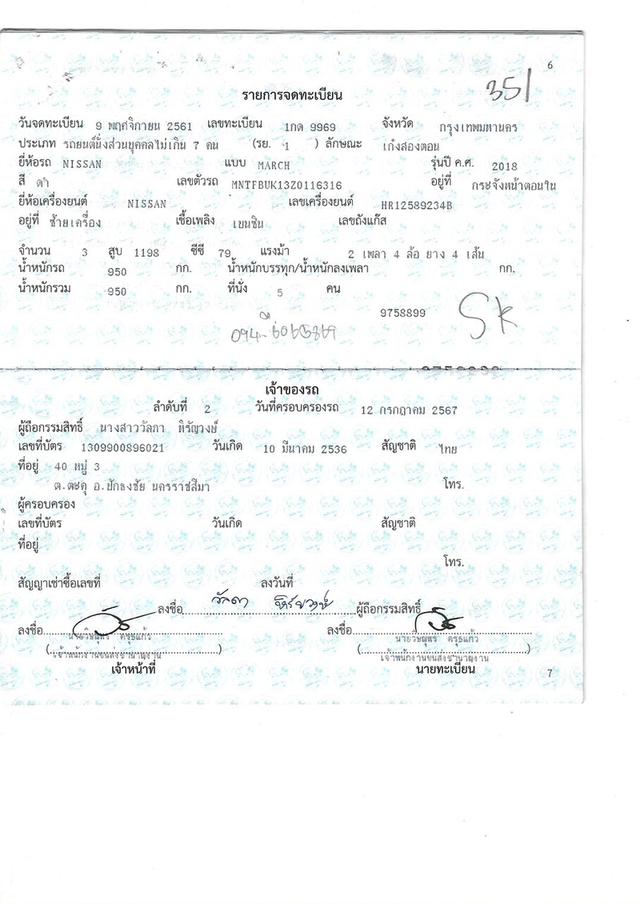 6
รายการจดทะเบียน
351
วันจดทะเบียน 9 พฤศจิกายน 2561 เลขทะเบียน 1กด 9969 จังหวัด กรุงเทพมหานคร
ประเภท รถยนต์นั่งส่วนบุคคลไม่เกิน 7 คน (รย. 1 ) ลักษณะ เก๋งสองตอน
ยี่ห้อรถ NISSAN แบบ MARCH รุ่นปี ค.ศ. 2018
สี ดำ เลขตัวรถ MNTFBUK13Z0116316 อยู่ที่ กระจังหน้าตอนใน
ยี่ห้อเครื่องยนต์ NISSAN เลขเครื่องยนต์ HR12589234B
อยู่ที่ ซ้ายเครื่อง เชื้อเพลิง เบนซิน เลขถังแก๊ส
จำนวน 3 สูบ 1198 ซีซี 79 แรงม้า 2 เพลา 4 ล้อ ยาง 4 เส้น
น้ำหนักรถ 950 กก. น้ำหนักบรรทุก/น้ำหนักลงเพลา กก.
น้ำหนักรวม 950 กก. ที่นั่ง 5 คน
9758899
SK
เจ้าของรถ
ลำดับที่ 2 วันที่ครอบครองรถ 12 กรกฎาคม 2567
ผู้ถือกรรมสิทธิ์ นางสาววัลภา หิรัญวงษ์
เลขที่บัตร 1309900896021 วันเกิด 10 มีนาคม 2536 สัญชาติ ไทย
ที่อยู่ 40 หมู่ 3
ต.ตะคุ อ.ปักธงชัย นครราชสีมา โทร.
ผู้ครอบครอง
เลขที่บัตร วันเกิด สัญชาติ
ที่อยู่
โทร.
สัญญาเช่าซื้อเลขที่ ลงวันที่
ลงชื่อ วัลภา หิรัญวงษ์ ผู้ถือกรรมสิทธิ์
ลงชื่อ ลงชื่อ
นายวิษณุพร ครุธแก้ว
(เจ้าพนักงานขนส่งชำนาญงาน) (เจ้าพนักงานขนส่งชำนาญงาน)
เจ้าหน้าที่ นายทะเบียน
7